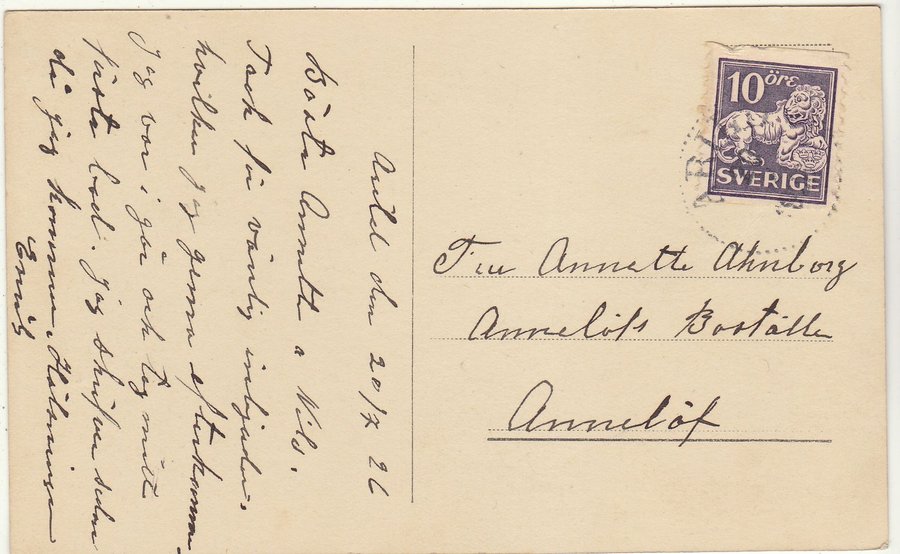 den 20/7 26
Bästa Annette o Nils.
Tack för vänlig inbjudan,
hvilken jag gerna efterkommer.
Jag var i går och tog mitt
första bad. Jag skrifver sedan
då jag kommer. Hälsningar
10 öre
SVERIGE
Fru Annette Ahnborg
Annelöfs Boställe
Annelöf